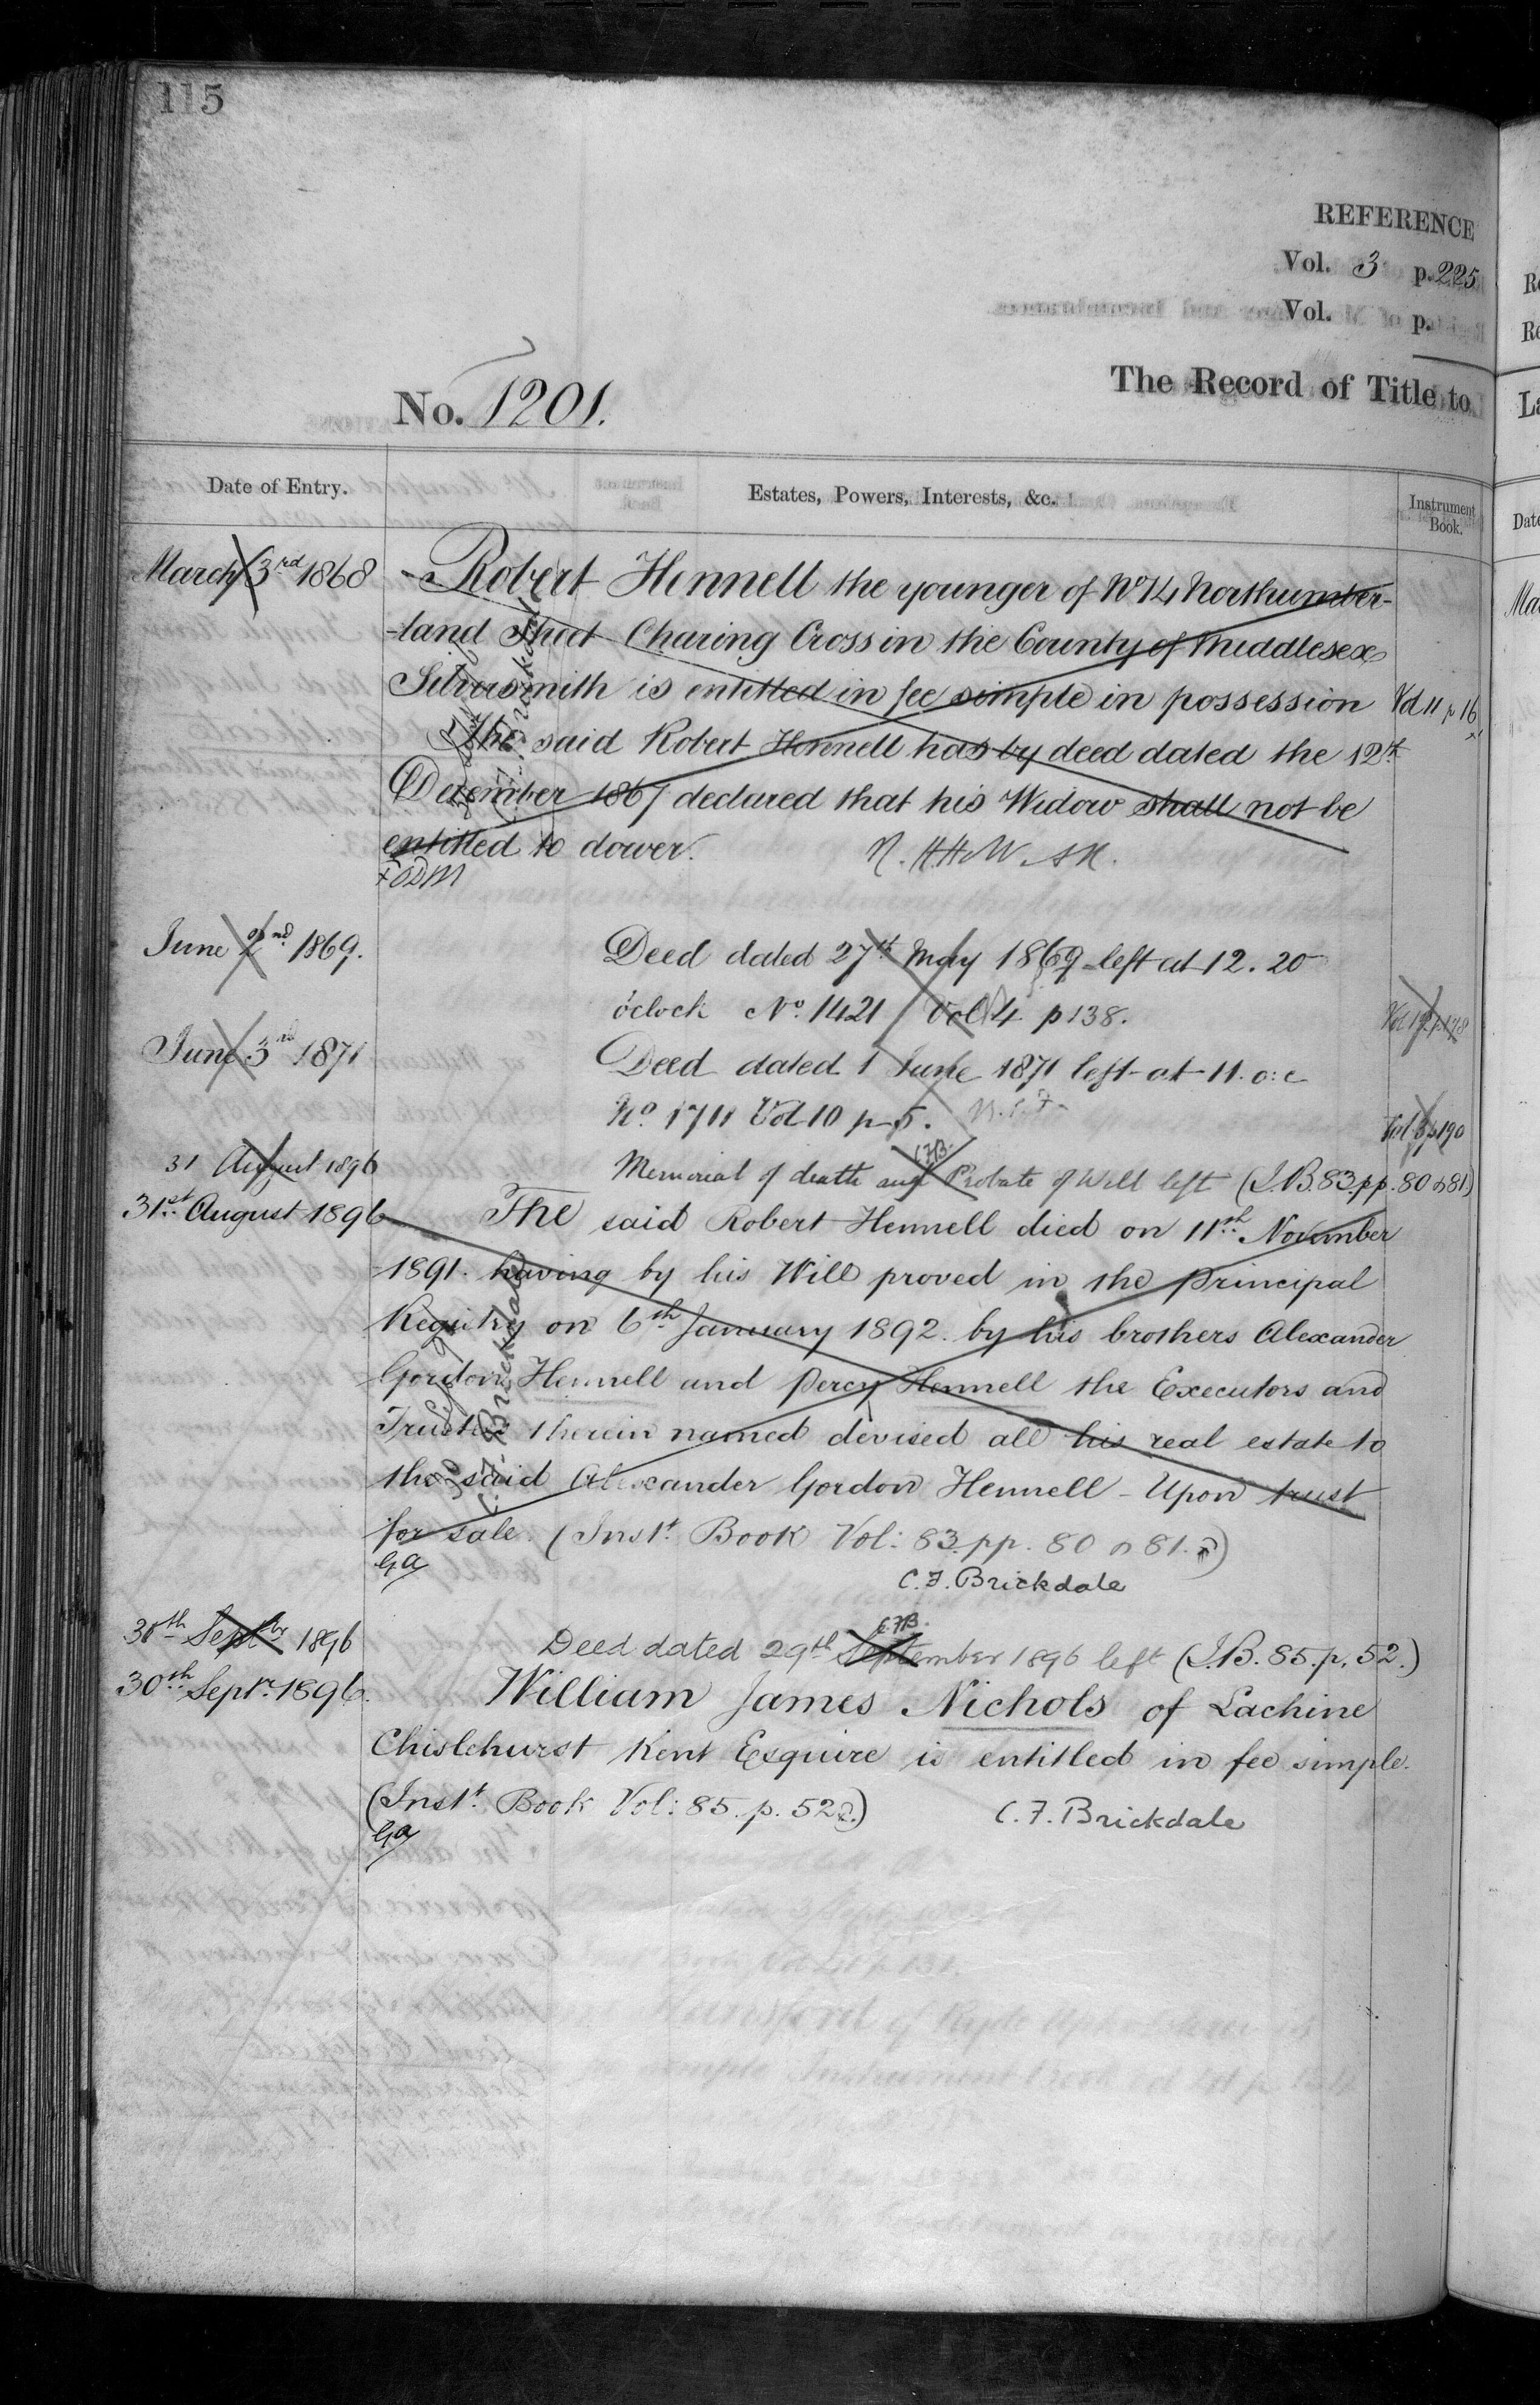 115
REFERENCE
Vol. 3 p. 225
Vol. p.
No. 1201.
The Record of Title to
Date of Entry.
Estates, Powers, Interests, &c.
Instrument Book.
March 3rd 1868 Robert Hennell the younger of No 14 Northumber-
-land Street Charing Cross in the County of Middlesex
Silversmith is entitled in fee simple in possession Vol 11 p 16
The said Robert Hennell has by deed dated the 12th
December 1867 declared that his Widow shall not be
entitled to dower.
June 2nd 1869. Deed dated 27th May 1869 left at 12.20
o'clock No. 1421 Vol 4 p 138.
June 3rd 1871 Deed dated 1 June 1871 left at 11. o:c
No. 1711 Vol 10 p 5.
C.F.B.
31 August 1896 Memorial of death and Probate of Will left (I.B. 83. pp. 80 & 81)
31st August 1896 The said Robert Hennell died on 11th November
1891. having by his Will proved in the Principal
Registry on 6th January 1892. by his brothers Alexander
Gordon Hennell and Percy Hennell the Executors and
Trustees therein named devised all his real estate to
the said Alexander Gordon Hennell - Upon trust
for sale. (Inst. Book Vol: 83. pp. 80 & 81.)
GA
C.F. Brickdale
C.F.B.
30th Septbr 1896 Deed dated 29th September 1896 left (I.B. 85. p. 52.)
30th Septr. 1896. William James Nichols of Lachine
Chislehurst Kent Esquire is entitled in fee simple.
(Inst. Book Vol: 85. p. 52.)
C.F. Brickdale
GA